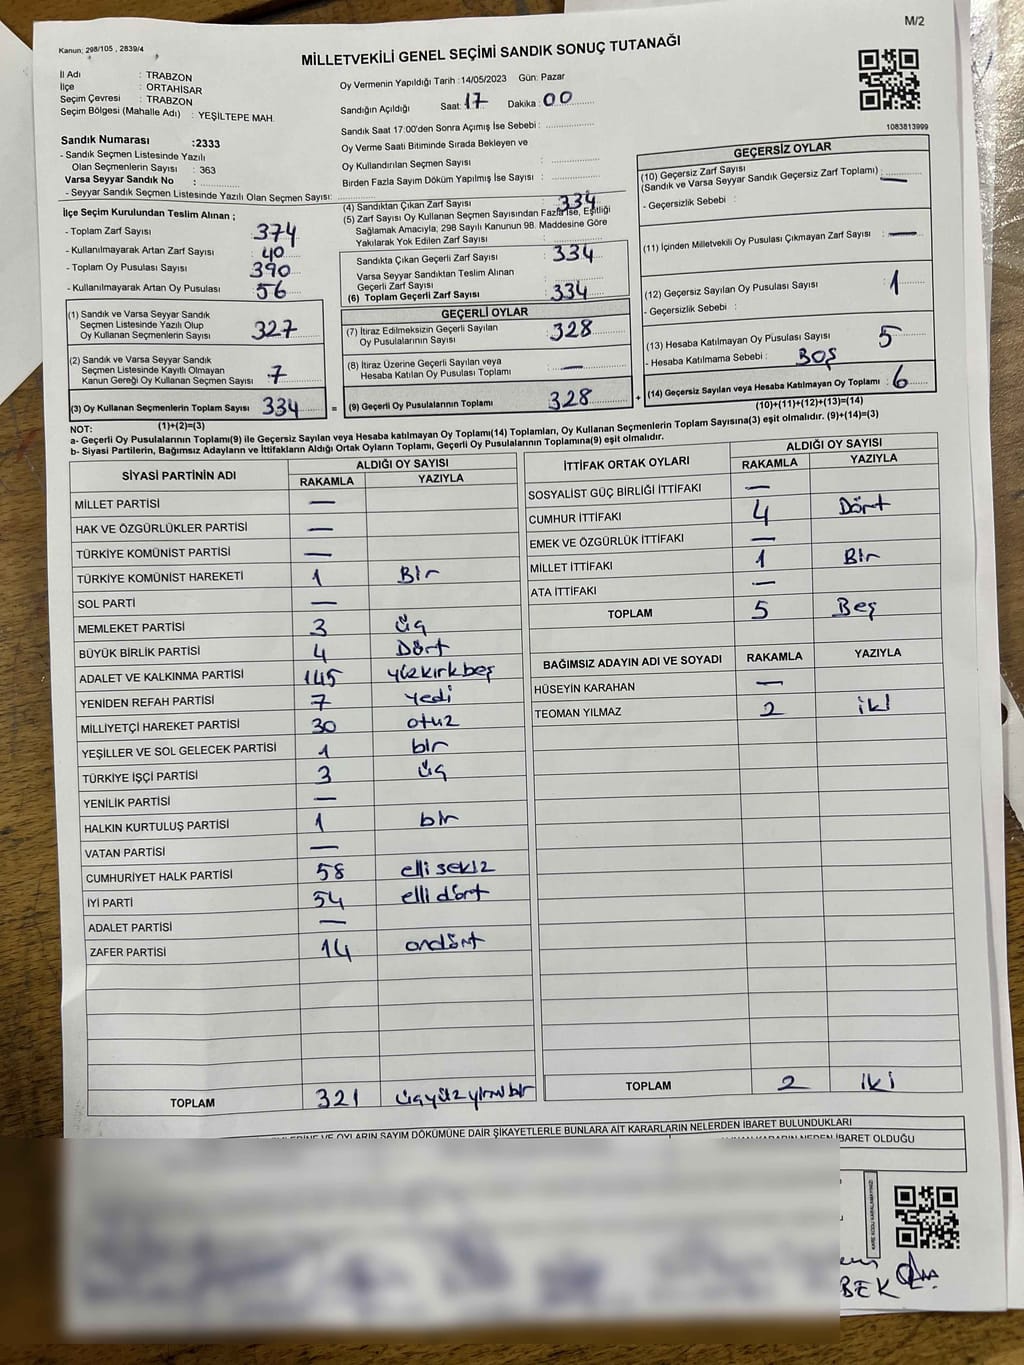 M/2
Kanun: 298/105 , 2839/4
MİLLETVEKİLİ GENEL SEÇİMİ SANDIK SONUÇ TUTANAĞI
İl Adı : TRABZON
İlçe : ORTAHİSAR
Seçim Çevresi : TRABZON
Seçim Bölgesi (Mahalle Adı) : YEŞİLTEPE MAH.
Oy Vermenin Yapıldığı Tarih : 14/05/2023 Gün: Pazar
Sandığın Açıldığı Saat: 17 Dakika : 00
Sandık Saat 17:00'den Sonra Açımış İse Sebebi :
Oy Verme Saati Bitiminde Sırada Bekleyen ve
Oy Kullandırılan Seçmen Sayısı :
Birden Fazla Sayım Döküm Yapılmış İse Sayısı :
1083813999
Sandık Numarası :2333
- Sandık Seçmen Listesinde Yazılı
Olan Seçmenlerin Sayısı : 363
Varsa Seyyar Sandık No :
- Seyyar Sandık Seçmen Listesinde Yazılı Olan Seçmen Sayısı:
İlçe Seçim Kurulundan Teslim Alınan ;
- Toplam Zarf Sayısı : 374
- Kullanılmayarak Artan Zarf Sayısı : 40
- Toplam Oy Pusulası Sayısı : 390
- Kullanılmayarak Artan Oy Pusulası : 56
(1) Sandık ve Varsa Seyyar Sandık
Seçmen Listesinde Yazılı Olup
Oy Kullanan Seçmenlerin Sayısı : 327
(2) Sandık ve Varsa Seyyar Sandık
Seçmen Listesinde Kayıtlı Olmayan
Kanun Gereği Oy Kullanan Seçmen Sayısı : 7
(3) Oy Kullanan Seçmenlerin Toplam Sayısı : 334
(1)+(2)=(3)
(4) Sandıktan Çıkan Zarf Sayısı : 334
(5) Zarf Sayısı Oy Kullanan Seçmen Sayısından Fazla İse, Eşitliği
Sağlamak Amacıyla, 298 Sayılı Kanunun 98. Maddesine Göre
Yakılarak Yok Edilen Zarf Sayısı :
Sandıkta Çıkan Geçerli Zarf Sayısı : 334
Varsa Seyyar Sandıktan Teslim Alınan
Geçerli Zarf Sayısı :
(6) Toplam Geçerli Zarf Sayısı : 334
GEÇERLİ OYLAR
(7) İtiraz Edilmeksizin Geçerli Sayılan
Oy Pusulalarının Sayısı : 328
(8) İtiraz Üzerine Geçerli Sayılan veya
Hesaba Katılan Oy Pusulası Toplamı : —
= (9) Geçerli Oy Pusulalarının Toplamı : 328 +
GEÇERSİZ OYLAR
(10) Geçersiz Zarf Sayısı
(Sandık ve Varsa Seyyar Sandık Geçersiz Zarf Toplamı) : —
- Geçersizlik Sebebi :
(11) İçinden Milletvekili Oy Pusulası Çıkmayan Zarf Sayısı : —
(12) Geçersiz Sayılan Oy Pusulası Sayısı : 1
- Geçersizlik Sebebi :
(13) Hesaba Katılmayan Oy Pusulası Sayısı : 5
- Hesaba Katılmama Sebebi : BOŞ
(14) Geçersiz Sayılan veya Hesaba Katılmayan Oy Toplamı : 6
(10)+(11)+(12)+(13)=(14)
NOT:
a- Geçerli Oy Pusulalarının Toplamı(9) ile Geçersiz Sayılan veya Hesaba katılmayan Oy Toplamı(14) Toplamları, Oy Kullanan Seçmenlerin Toplam Sayısına(3) eşit olmalıdır. (9)+(14)=(3)
b- Siyasi Partilerin, Bağımsız Adayların ve İttifakların Aldığı Ortak Oyların Toplamı, Geçerli Oy Pusulalarının Toplamına(9) eşit olmalıdır.
SİYASİ PARTİNİN ADI ALDIĞI OY SAYISI
RAKAMLA YAZIYLA
MİLLET PARTİSİ —
HAK VE ÖZGÜRLÜKLER PARTİSİ —
TÜRKİYE KOMÜNİST PARTİSİ —
TÜRKİYE KOMÜNİST HAREKETİ 1 Bir
SOL PARTİ —
MEMLEKET PARTİSİ 3 üç
BÜYÜK BİRLİK PARTİSİ 4 Dört
ADALET VE KALKINMA PARTİSİ 145 yüzkırkbeş
YENİDEN REFAH PARTİSİ 7 yedi
MİLLİYETÇİ HAREKET PARTİSİ 30 otuz
YEŞİLLER VE SOL GELECEK PARTİSİ 1 bir
TÜRKİYE İŞÇİ PARTİSİ 3 üç
YENİLİK PARTİSİ —
HALKIN KURTULUŞ PARTİSİ 1 bir
VATAN PARTİSİ —
CUMHURİYET HALK PARTİSİ 58 elli sekiz
İYİ PARTİ 54 elli dört
ADALET PARTİSİ —
ZAFER PARTİSİ 14 ondört
TOPLAM 321 üçyüzyirmibir
İTTİFAK ORTAK OYLARI ALDIĞI OY SAYISI
RAKAMLA YAZIYLA
SOSYALİST GÜÇ BİRLİĞİ İTTİFAKI —
CUMHUR İTTİFAKI 4 Dört
EMEK VE ÖZGÜRLÜK İTTİFAKI —
MİLLET İTTİFAKI 1 Bir
ATA İTTİFAKI —
TOPLAM 5 Beş
BAĞIMSIZ ADAYIN ADI VE SOYADI RAKAMLA YAZIYLA
HÜSEYİN KARAHAN —
TEOMAN YILMAZ 2 iki
TOPLAM 2 iki
VE OYLARIN SAYIM DÖKÜMÜNE DAİR ŞİKAYETLERLE BUNLARA AİT KARARLARIN NELERDEN İBARET BULUNDUKLARI
KARARIN NEDEN İBARET OLDUĞU
BEK